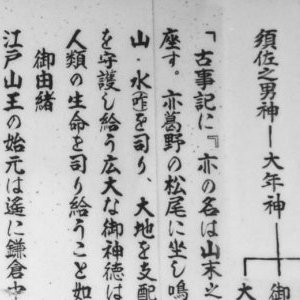 須佐之男神―大年神―
御
大
「古事記に『亦の名は山末之
座す。亦葛野の松尾に坐し鳴
山・水を司り、大地を支配
を守護し給う広大な御神徳は
人類の生命を司り給うこと如
御由緒
江戸山王の始元は遙に鎌倉